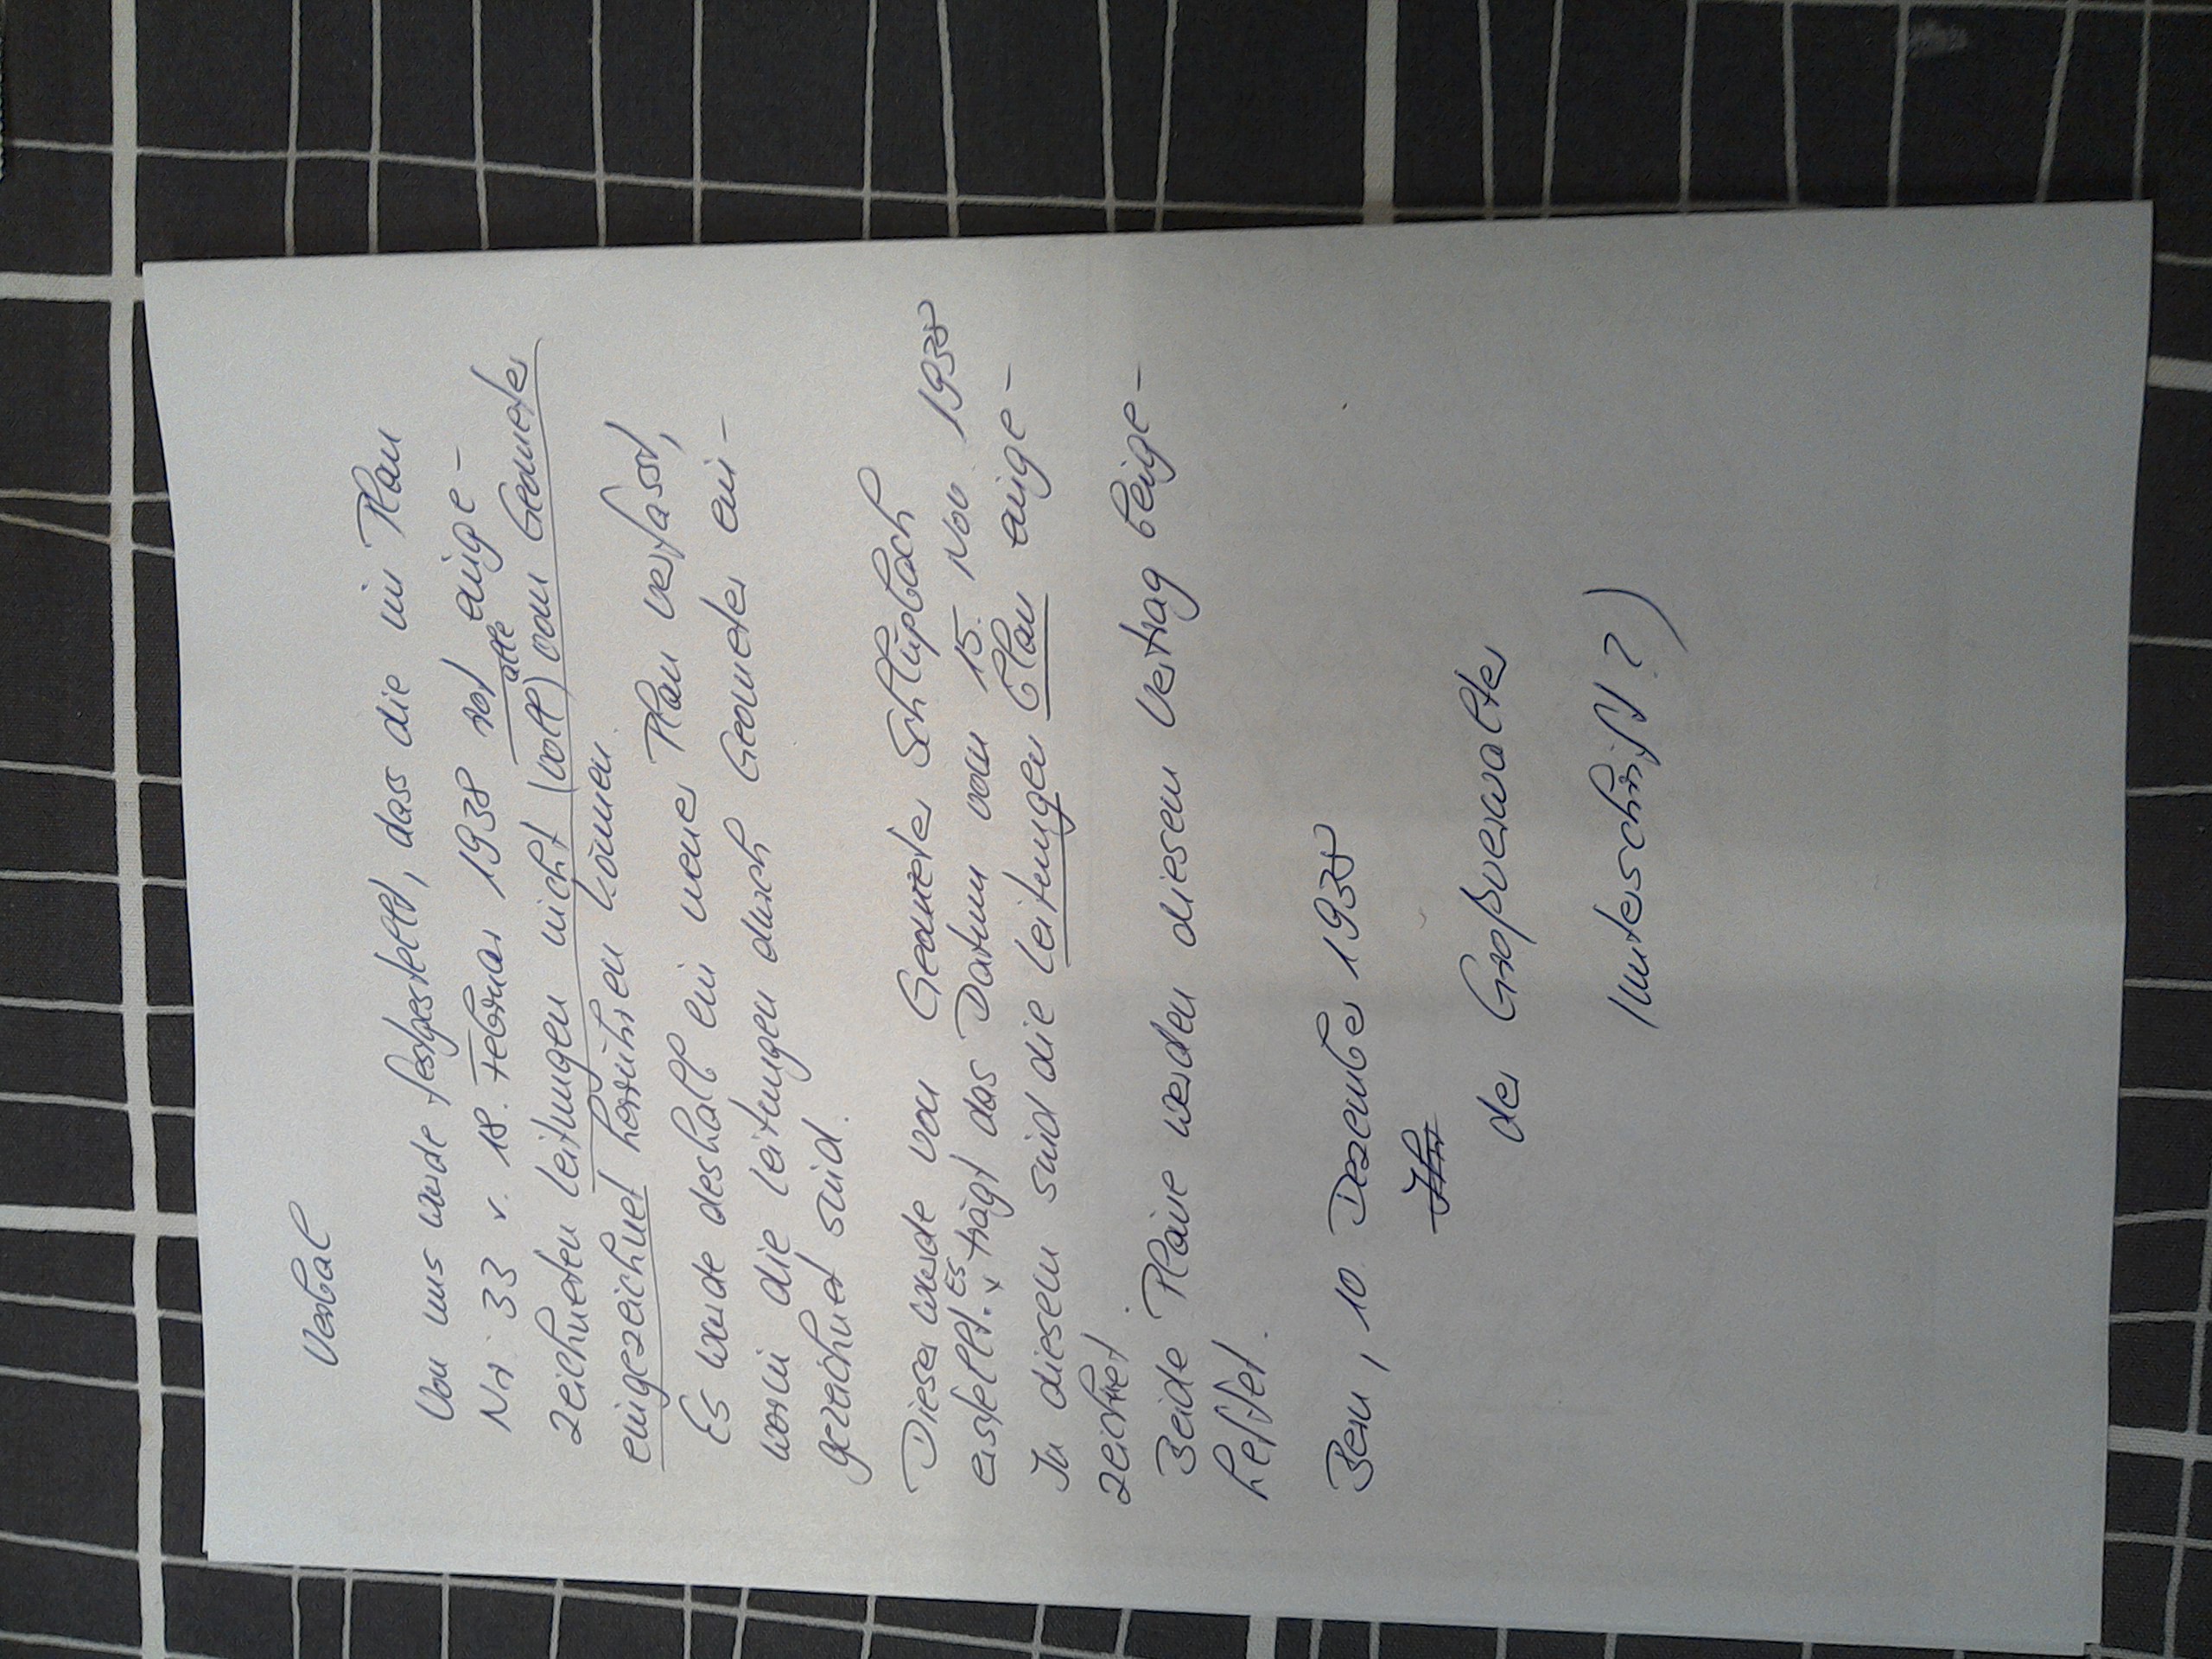 Verbal
Von uns wurde festgestellt, dass die im Plan
Nr. 33 v. 18. Februar 1938 rot einge-
zeichneten Leitungen nicht (voll) alle vom Geometer
eingezeichnet herrühren können.
Es wurde deshalb ein neuer Plan verfasst,
worin die Leitungen durch Geometer ein-
gezeichnet sind.
Dieser wurde von Geometer Schlüpbach
erstellt. Es trägt das Datum vom 15. Nov. 1938
In diesem sind die Leitungen blau einge-
zeichnet.
Beide Pläne werden diesem Vertrag beige-
heftet.
Bern, 10 Dezember 1938
der Großverwalter
(Unterschrift?)